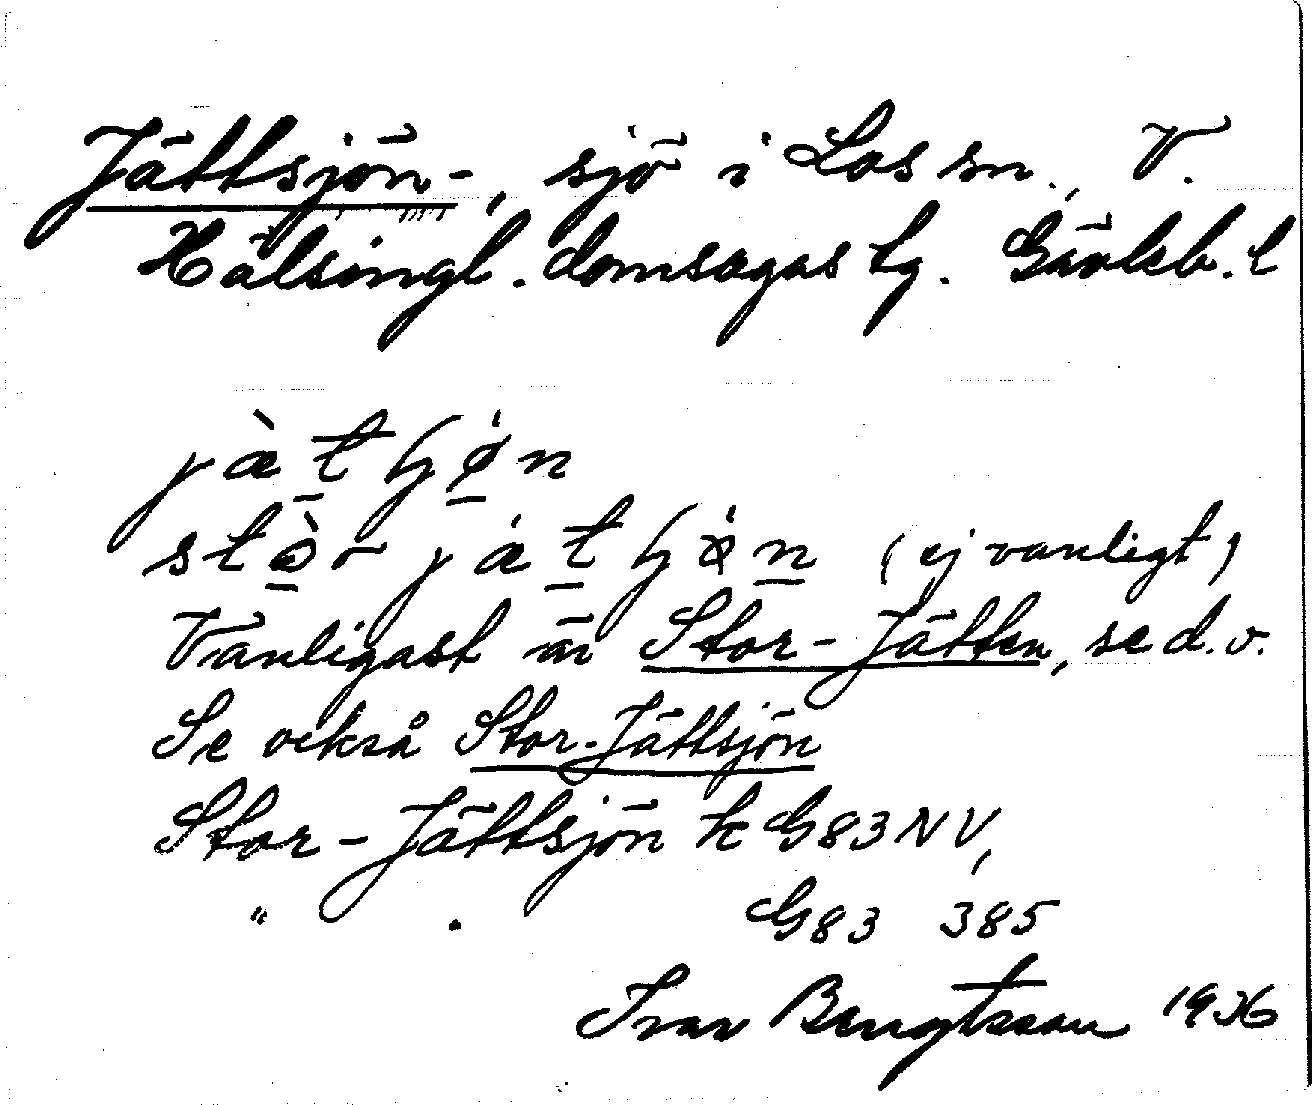 Jättsjön-, sjö i Los sn., V.
Hälsingl. domsagas tg. Gävleb. l
jàt̲ ɧø̲n
stò̲r ját̲ ɧøn̲ (ej vanligt)
Vanligast är Stor-Jätten, se d.v.
Se också Stor-Jättsjön
Stor-Jättsjön k G83NV,
" " G83 385
Ivar Bengtsson 1936